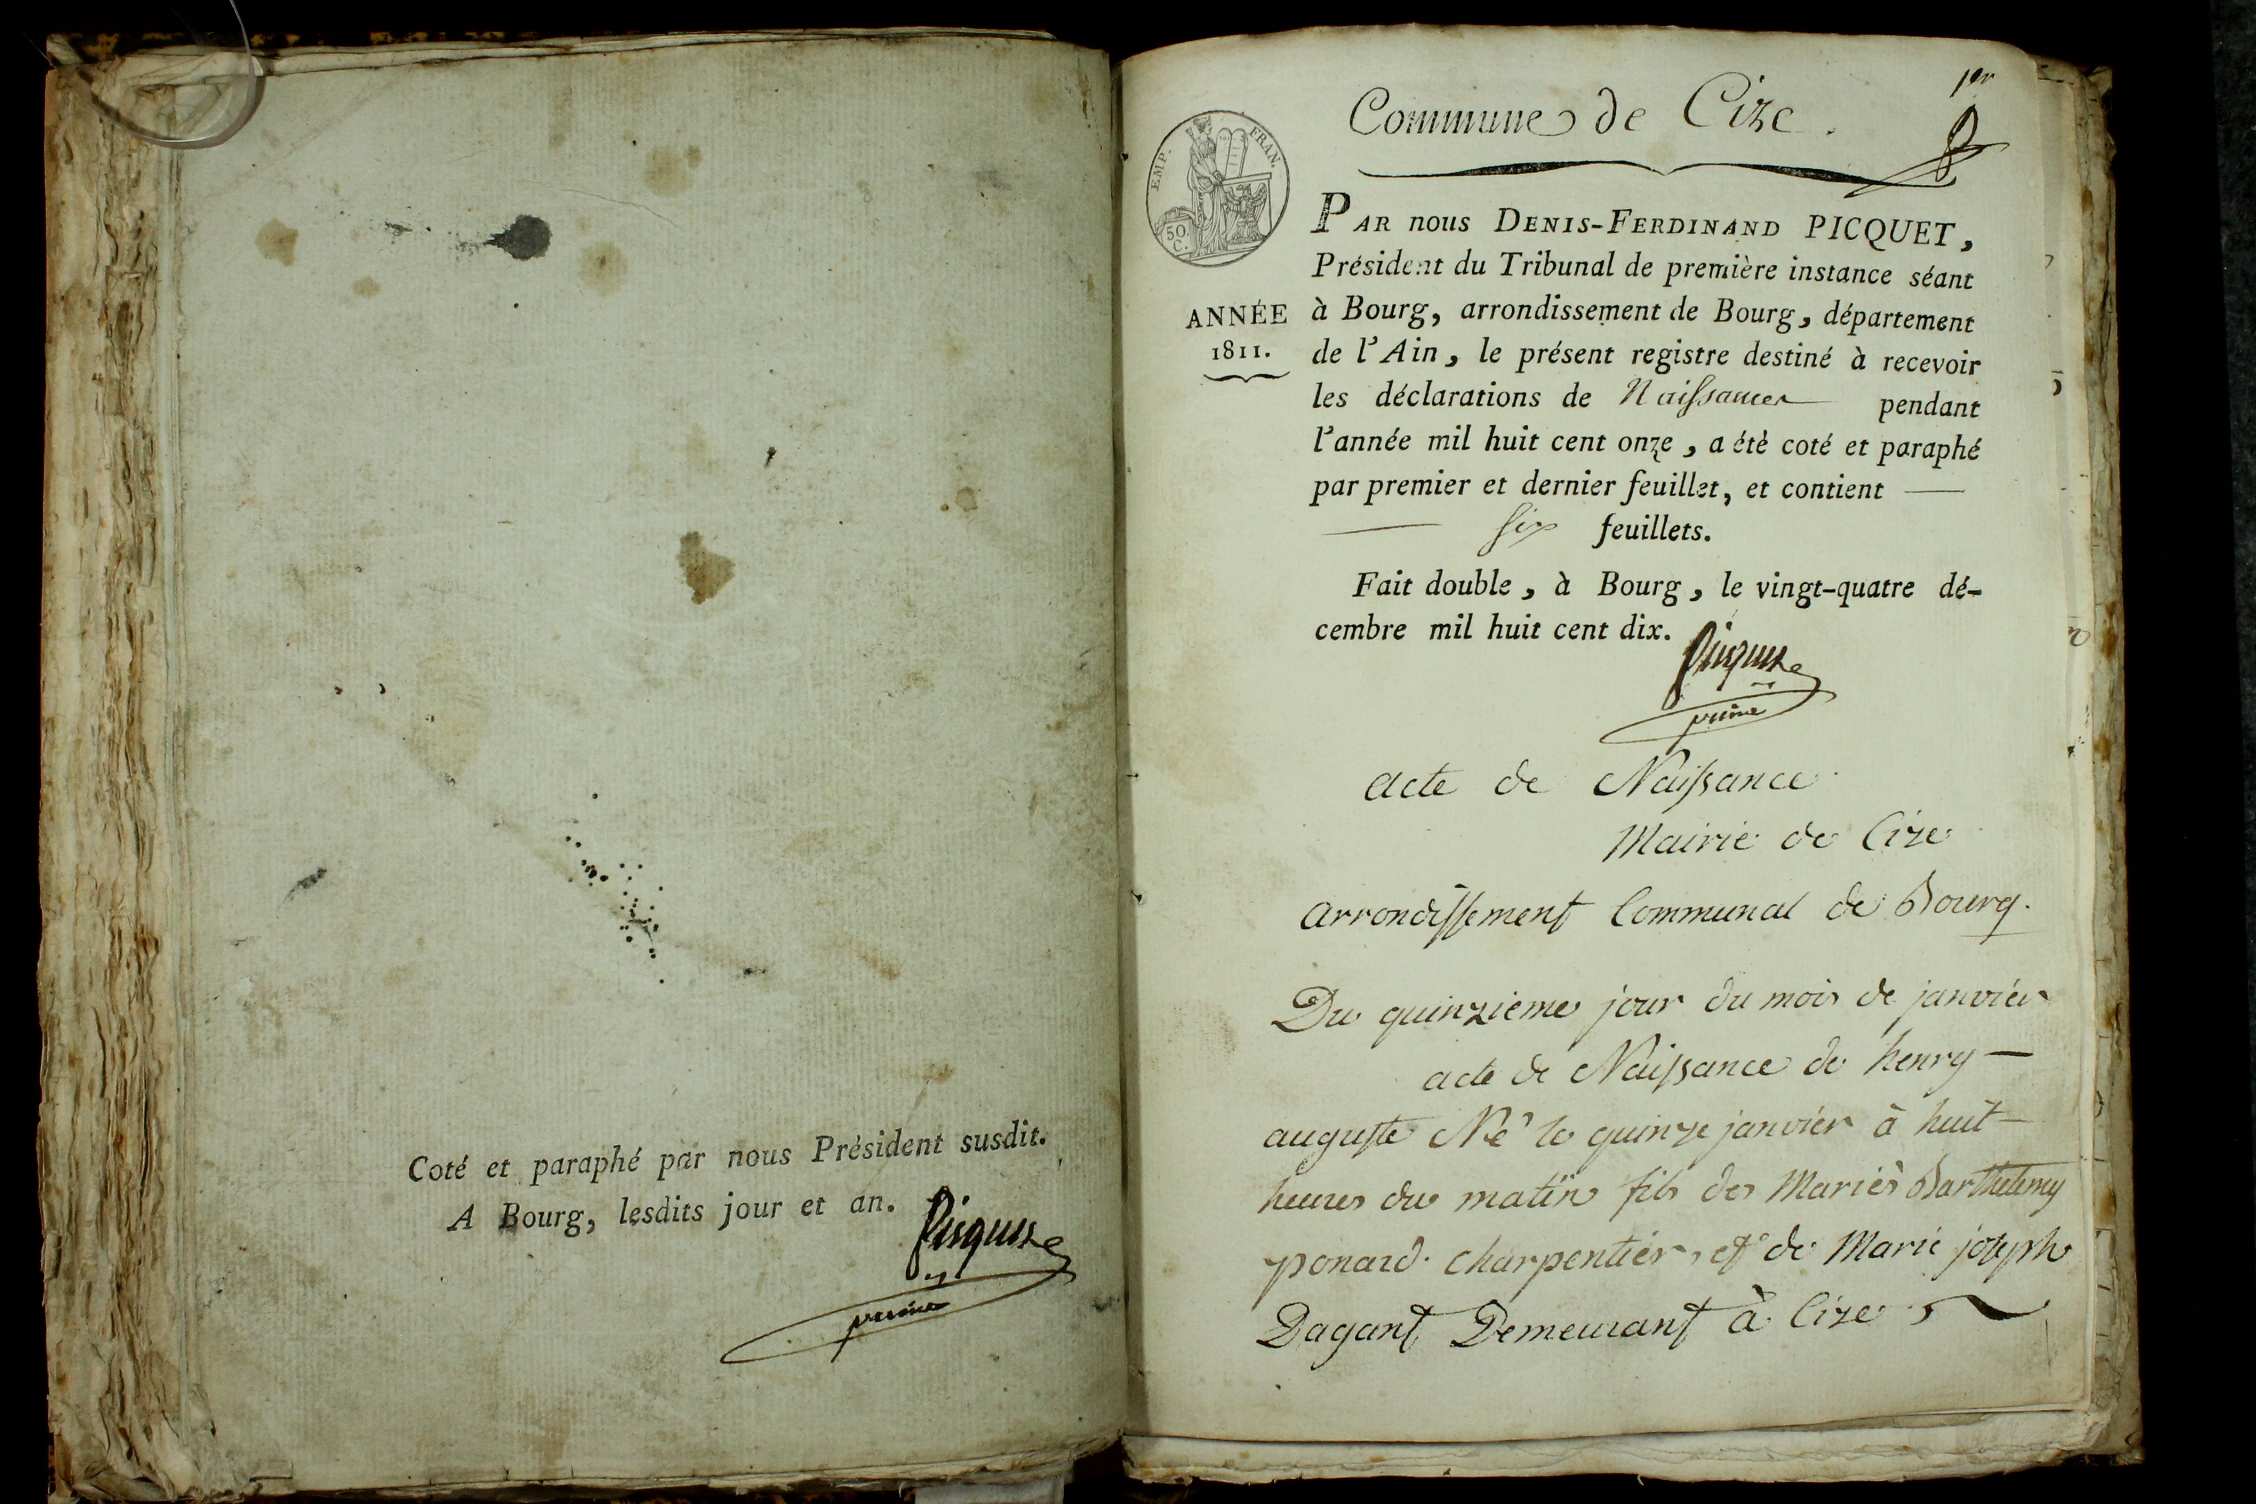 Coté et paraphé par nous Président susdit.
A Bourg, lesdits jour et an.
Picquet
1er
Commune de Cize.
EMP. FRAN.
50.
C.
ANNÉE
1811.
PAR nous DENIS-FERDINAND PICQUET,
Président du Tribunal de première instance séant
à Bourg, arrondissement de Bourg, département
de l'Ain, le présent registre destiné à recevoir
les déclarations de Naissances pendant
l'année mil huit cent onze, a étè coté et paraphé
par premier et dernier feuillet, et contient
six feuillets.
Fait double, à Bourg, le vingt-quatre dé-
cembre mil huit cent dix.
Picquet
acte de Naissance
Mairie de Cize
arrondissement Communal de Bourg.
Du quinzieme jour du mois de janvier
acte de Naissance de henry
auguste Né le quinze janvier à huit
heures du matin fils des Mariés Barthelemy
ponard charpentier, et de Marie joseph
Dagant Demeurant à Cize